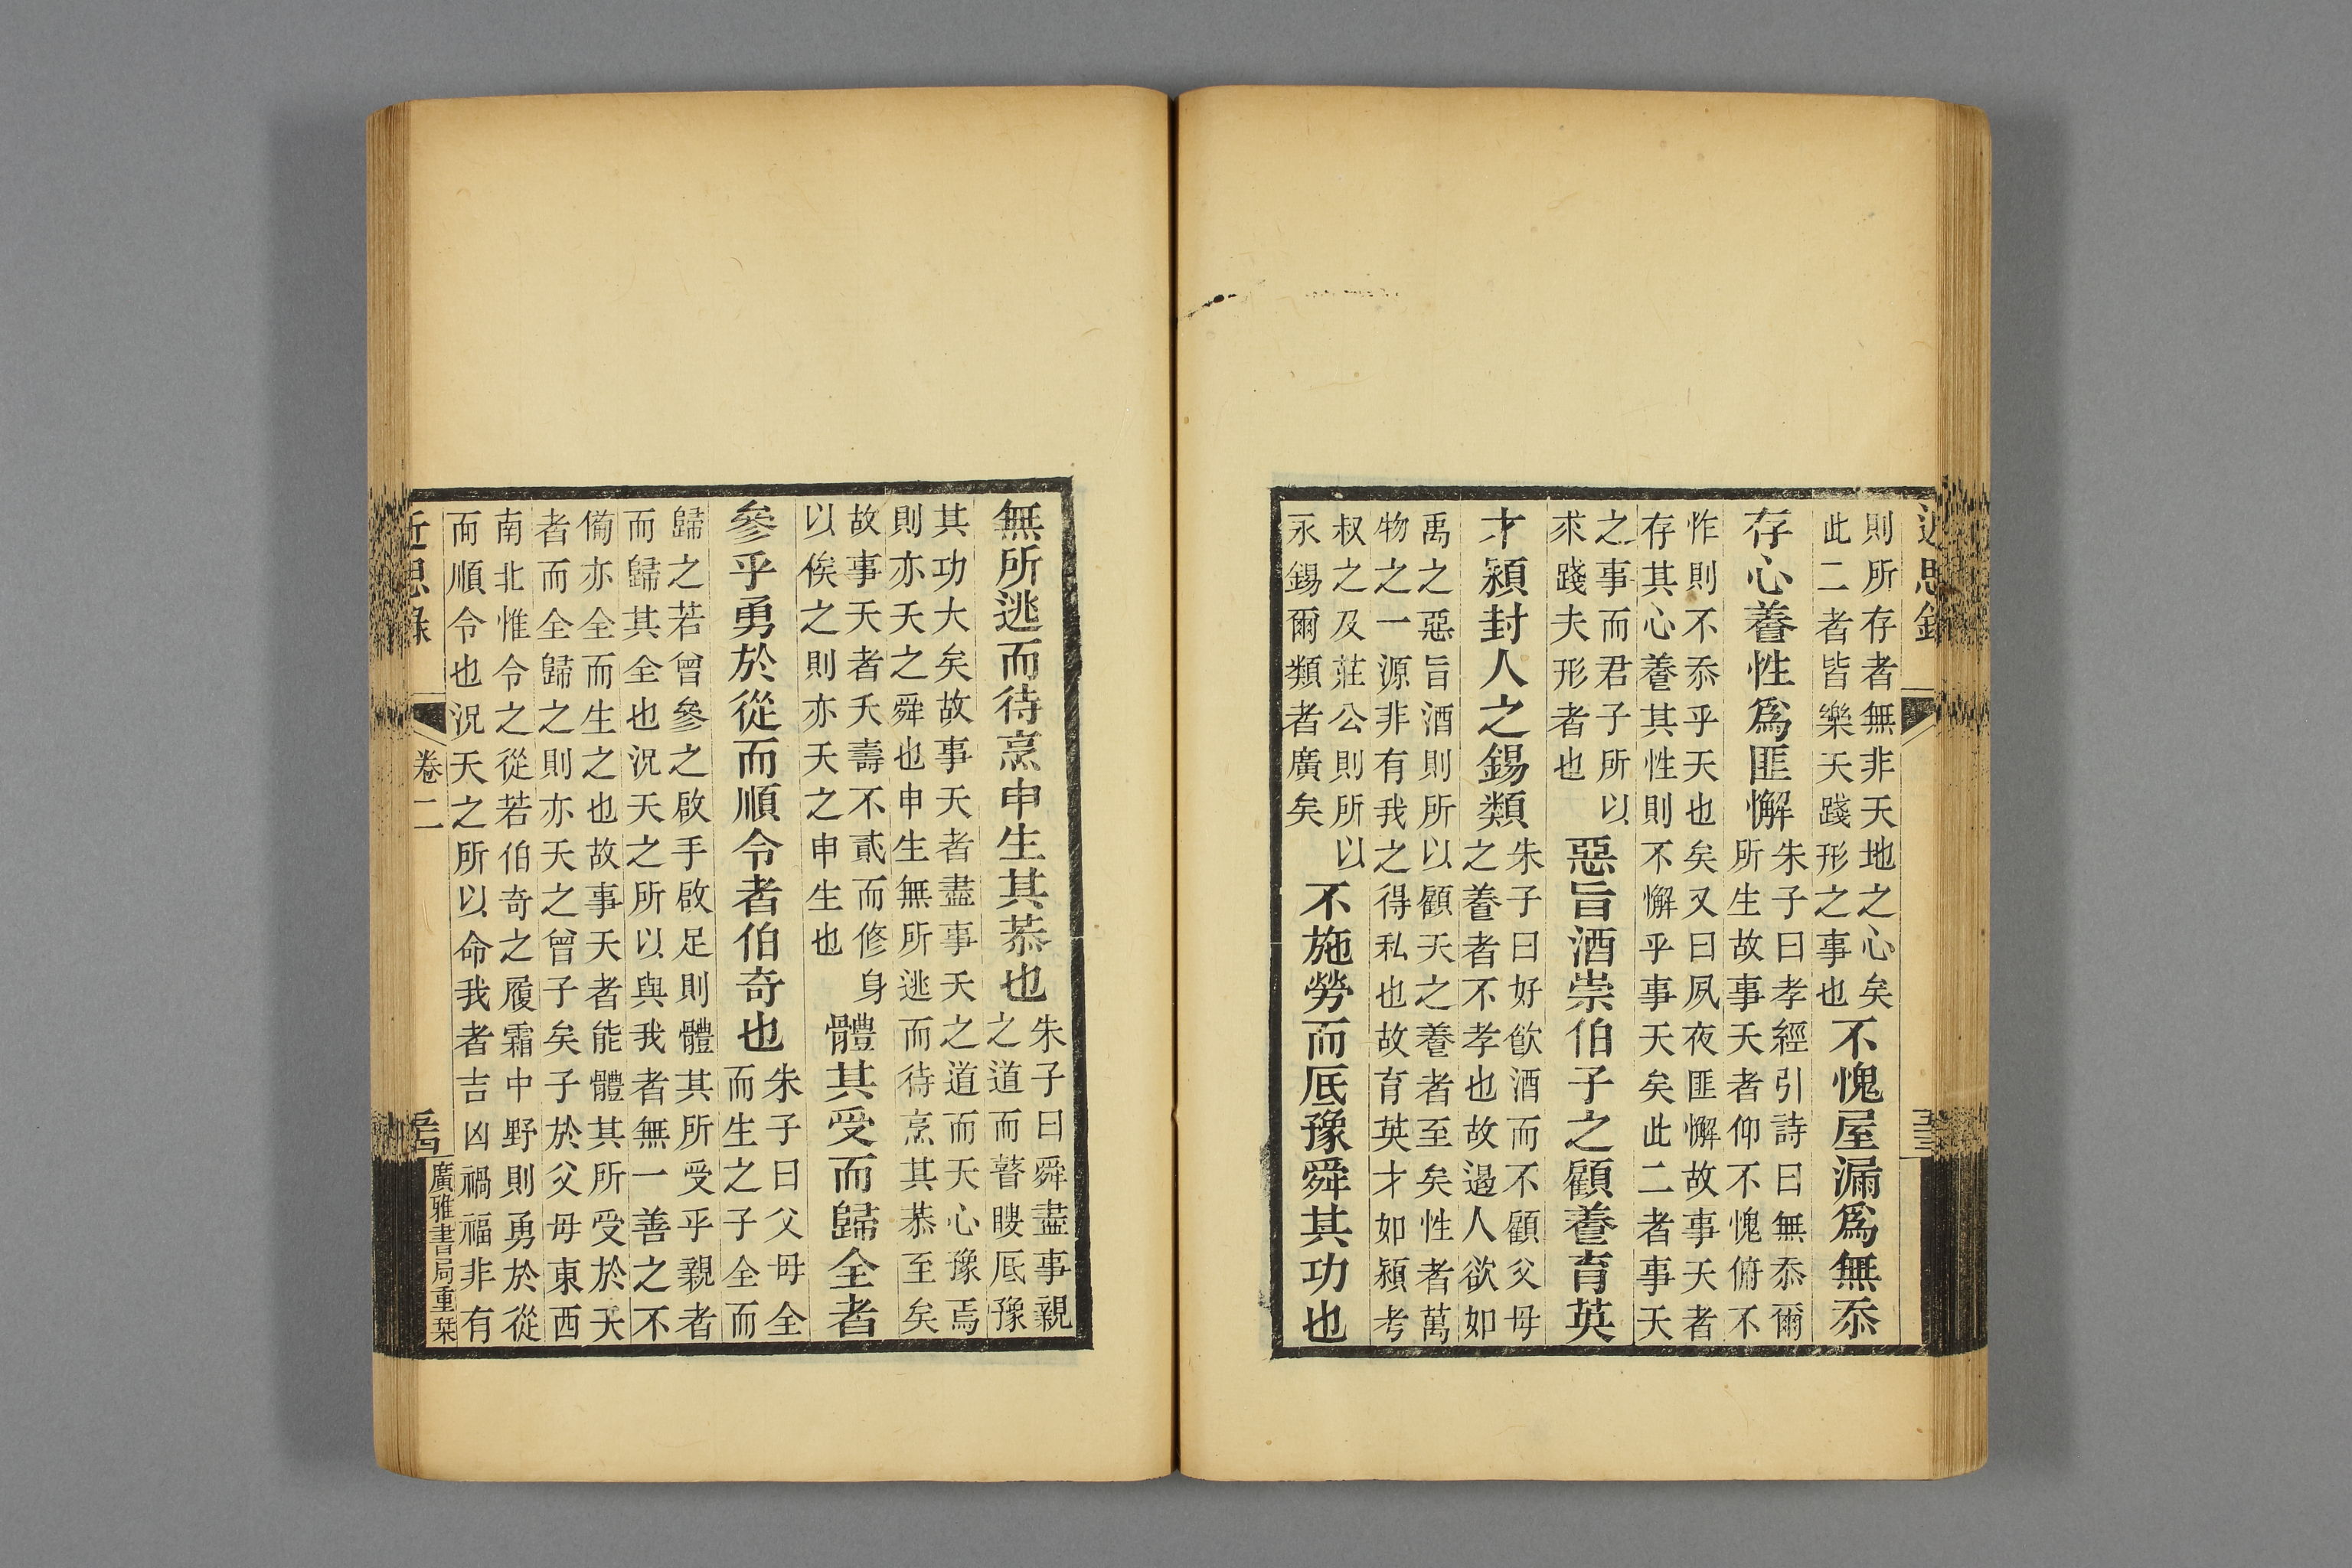 近思錄
五三
則所存者無非天地之心矣
此二者皆樂天踐形之事也
不愧屋漏爲無忝
存心養性爲匪懈
朱子曰孝經引詩曰無忝爾
所生故事天者仰不愧俯不
怍則不忝乎天也矣又曰夙夜匪懈故事天者
存其心養其性則不懈乎事天矣此二者事天
之事而君子所以
求踐夫形者也
惡旨酒崇伯子之顧養育英
才潁封人之錫類
朱子曰好飮酒而不顧父母
之養者不孝也故遏人欲如
禹之惡旨酒則所以顧天之養者至矣性者萬
物之一源非有我之得私也故育英才如潁考
叔之及莊公則所以
永錫爾類者廣矣
不施勞而厎豫舜其功也
無所逃而待烹申生其恭也
朱子曰舜盡事親
之道而瞽瞍厎豫
其功大矣故事天者盡事天之道而天心豫焉
則亦天之舜也申生無所逃而待烹其恭至矣
故事天者夭壽不貳而修身
以俟之則亦天之申生也
體其受而歸全者
參乎勇於從而順令者伯奇也
朱子曰父母全
而生之子全而
歸之若曾參之啟手啟足則體其所受乎親者
而歸其全也況天之所以與我者無一善之不
備亦全而生之也故事天者能體其所受於天
者而全歸之則亦天之曾子矣子於父母東西
南北惟令之從若伯奇之履霜中野則勇於從
而順令也況天之所以命我者吉凶禍福非有
近思錄
卷二
五四
廣雅書局重栞